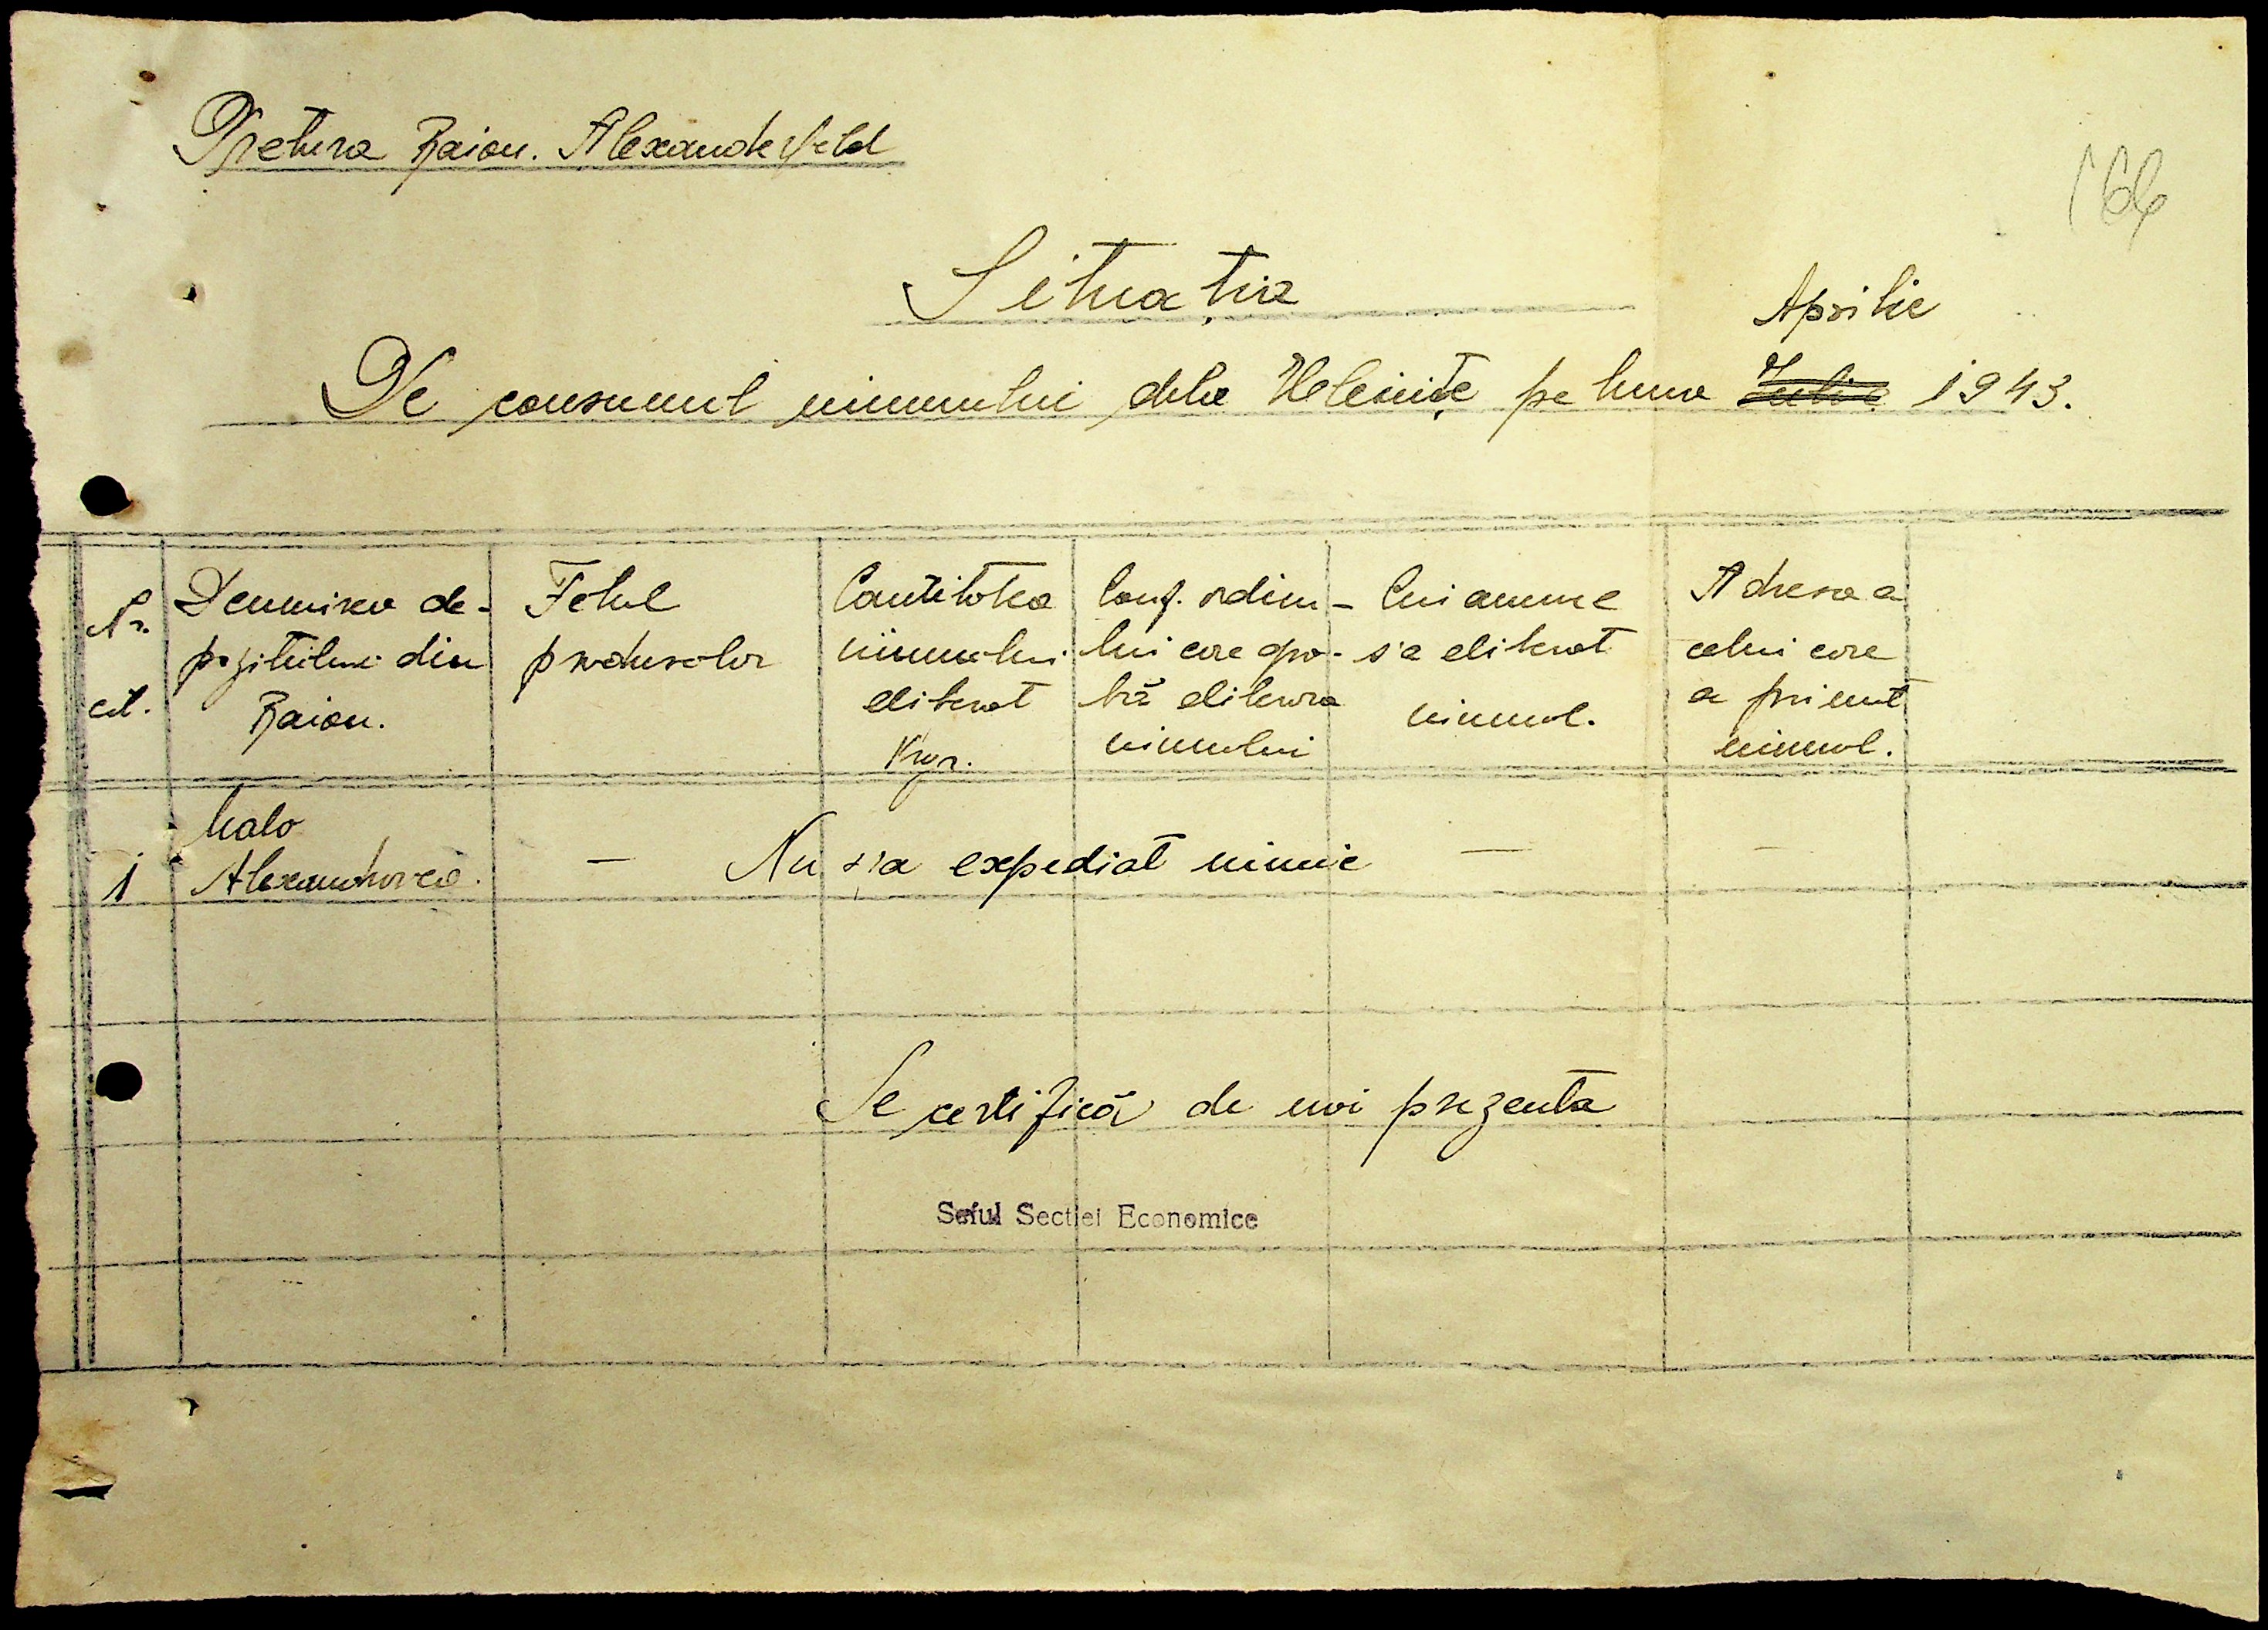 Pretura Raion. Alexanderfeld
166
Situația
Aprilie
De consumul vinnului dela Veleinițe pe luna Iulie 1943.
Nr. crt.
Denumirea de-
pozitului din
Raion.
Felul
produselor
Cantitatea
vinnului
eliberat
Kgr.
Conf. ordinu-
lui care apro-
bă elibera
vinului
Cui anume
s'a eliberat
vinnul.
Adresa a
celui care
a primit
vinnul.
1 Malo Alexandrovca. — Nu s'a expediat nimic — —
Se certifică de noi prezenta
Seful Sectiei Economice